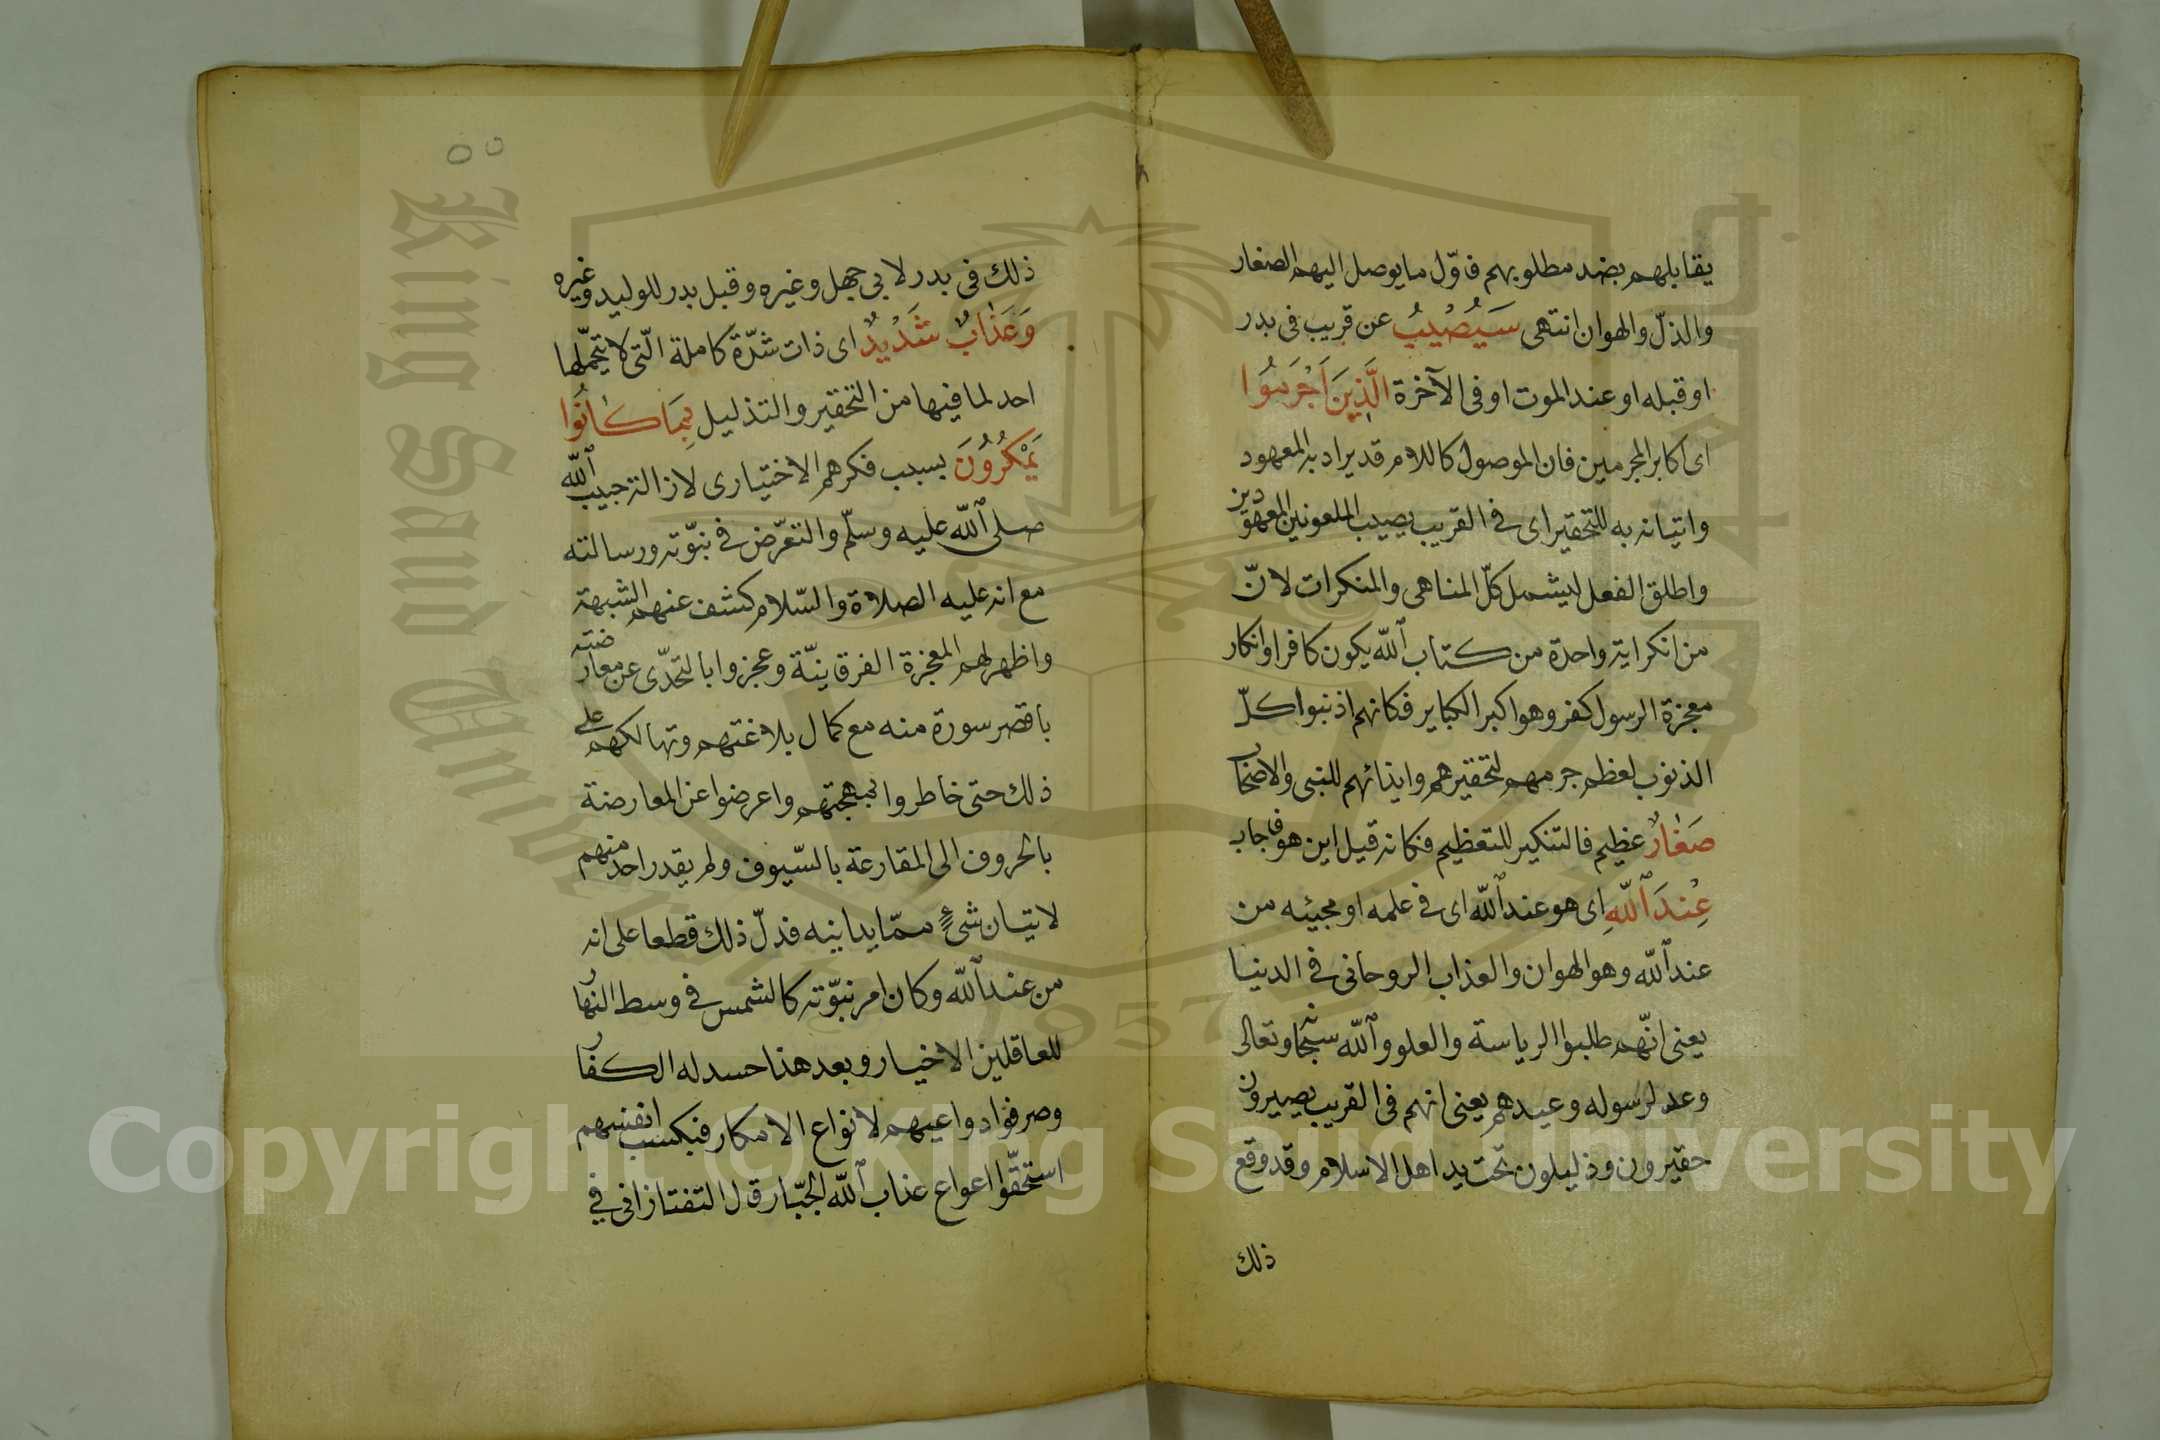 يقابلهم بضد مطلوبهم فاوّل ما يوصل اليهم الصغار
والذلّ والهوان انتهى سَيُصْيبُ عن قريب فى بدر
او قبله او عند الموت او فى الآخرة الَّذِينَ اَجْرَمُوا
اى اكابر المجرمين فان الموصول كاللام قد يراد به المعهود
واتيانه به للتحقير اى فى القريب يصيب الملعونين المعهودين
واطلق الفعل ليشمل كلّ المناهى والمنكرات لانّ
من انكر اية واحدة من كتاب الله يكون كافرا وانكار
معجزة الرسول كفر وهو اكبر الكباير فكانهم اذنبوا كلّ
الذنوب لعظم جرمهم لتحقيرهم وايذائهم للنبى والاضحاك
صَغَارٌ عظيم فالتنكير للتعظيم فكانه قيل اين هو فاجاب
عِنْدَ اللّٰهِ اى هو عند اللّٰه اى فى علمه او مجيئه من
عند اللّٰه وهو الهوان والعذاب الروحانى فى الدنيا
يعنى انّهم طلبوا الرياسة والعلو واللّٰه سبحانه وتعالى
وعد لرسوله وعيدهم يعنى انهم فى القريب يصيرون
حقيرون وذليلون تحت يد اهل الاسلام وقد وقع
ذلك
٥٥
ذلك فى بدر لابى جهل وغيره وقبل بدر للوليد وغيره
وَعَذَابٌ شَدْيدٌ اى ذات شدّة كاملة الّتى لا يتحمّلها
احد لما فيها من التحقير والتذليل بِمَا كَانُوا
يَمْكُرُوُنَ بسبب فكرهم الاختيارى لازالة حبيب اللّٰه
صلى اللّٰه عليه وسلّم والتعرّض فى نبوّته ورسالته
مع انه عليه الصلاة والسّلام كشف عنهم الشبهة
واظهر لهم المعجزة الفرقانيّة وعجزوا بالتحدّى عن معارضته
باقصر سورة منه مع كمال بلاغتهم وتهالكهم على
ذلك حتى خاطروا بمهجتهم واعرضوا عن المعارضة
بالحروف الى المقارعة بالسّيوف ولم يقدر احد منهم
لاتيان شئ ممّا يدانيه فدلّ ذلك قطعا على انه
من عند اللّٰه وكان امر نبوّته كالشمس فى وسط النهار
للعاقلين الاخيار وبعد هذا حسد له الكفار
وصرفوا دواعيهم لانواع الامكار فبكسب انفسهم
استحقّوا اعواع عذاب اللّٰه الجبّار قال التفتازانى فى
King Saud University
1957
Copyright © King Saud University